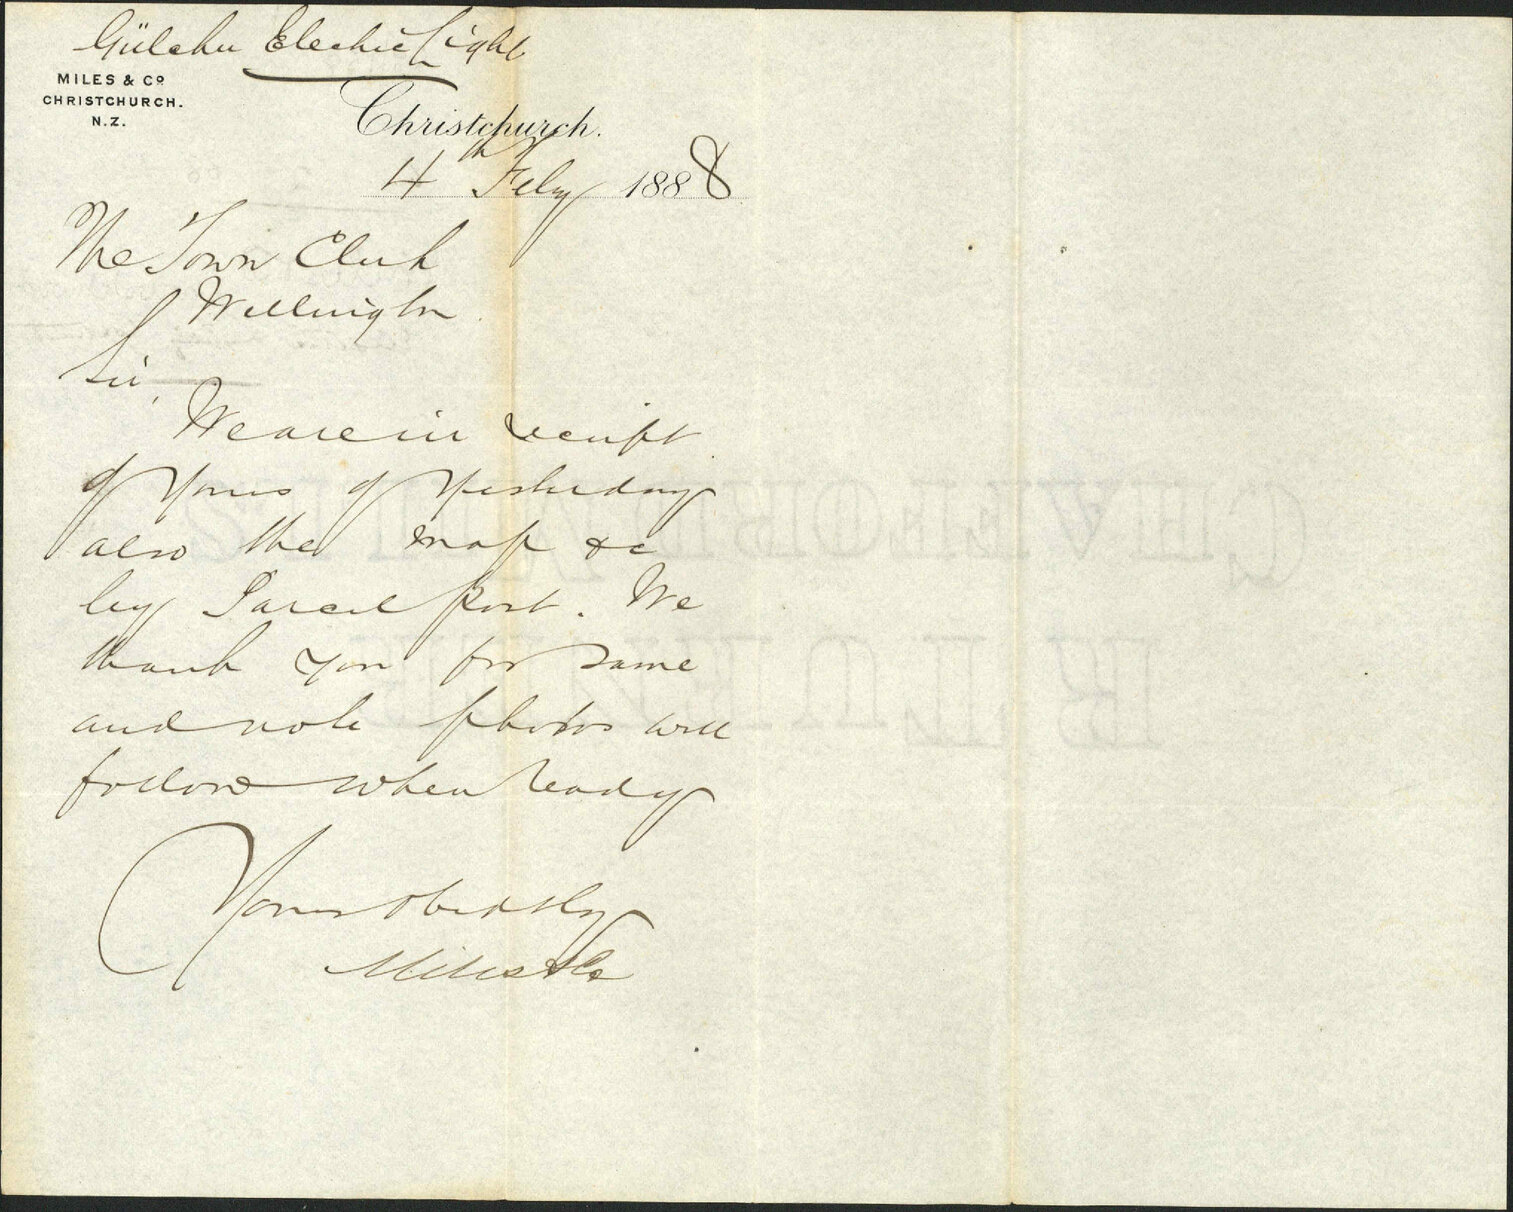 Gülcher Electric Light
MILES & Co
CHRISTCHURCH.
N.Z.
Christchurch.
4th Feby 1888
The Town Clerk
Wellington
Sir,
We are in receipt
of Yours of Yesterday
also the map &c
by Parcel Post. We
thank you for same
and note photos will
follow when ready
Yours obedtly
Miles & Co